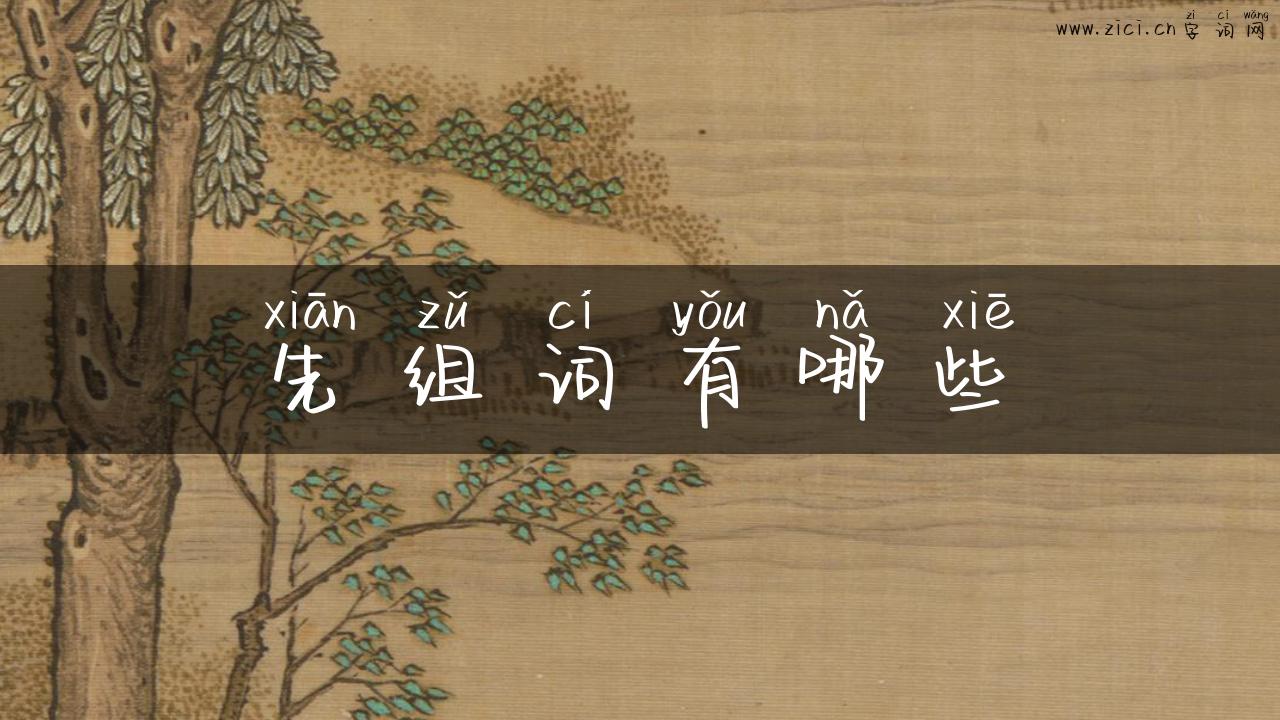 zì cí wǎng
www.zici.cn 字词网
xiān zǔ cí yǒu nǎ xiē
先组词有哪些